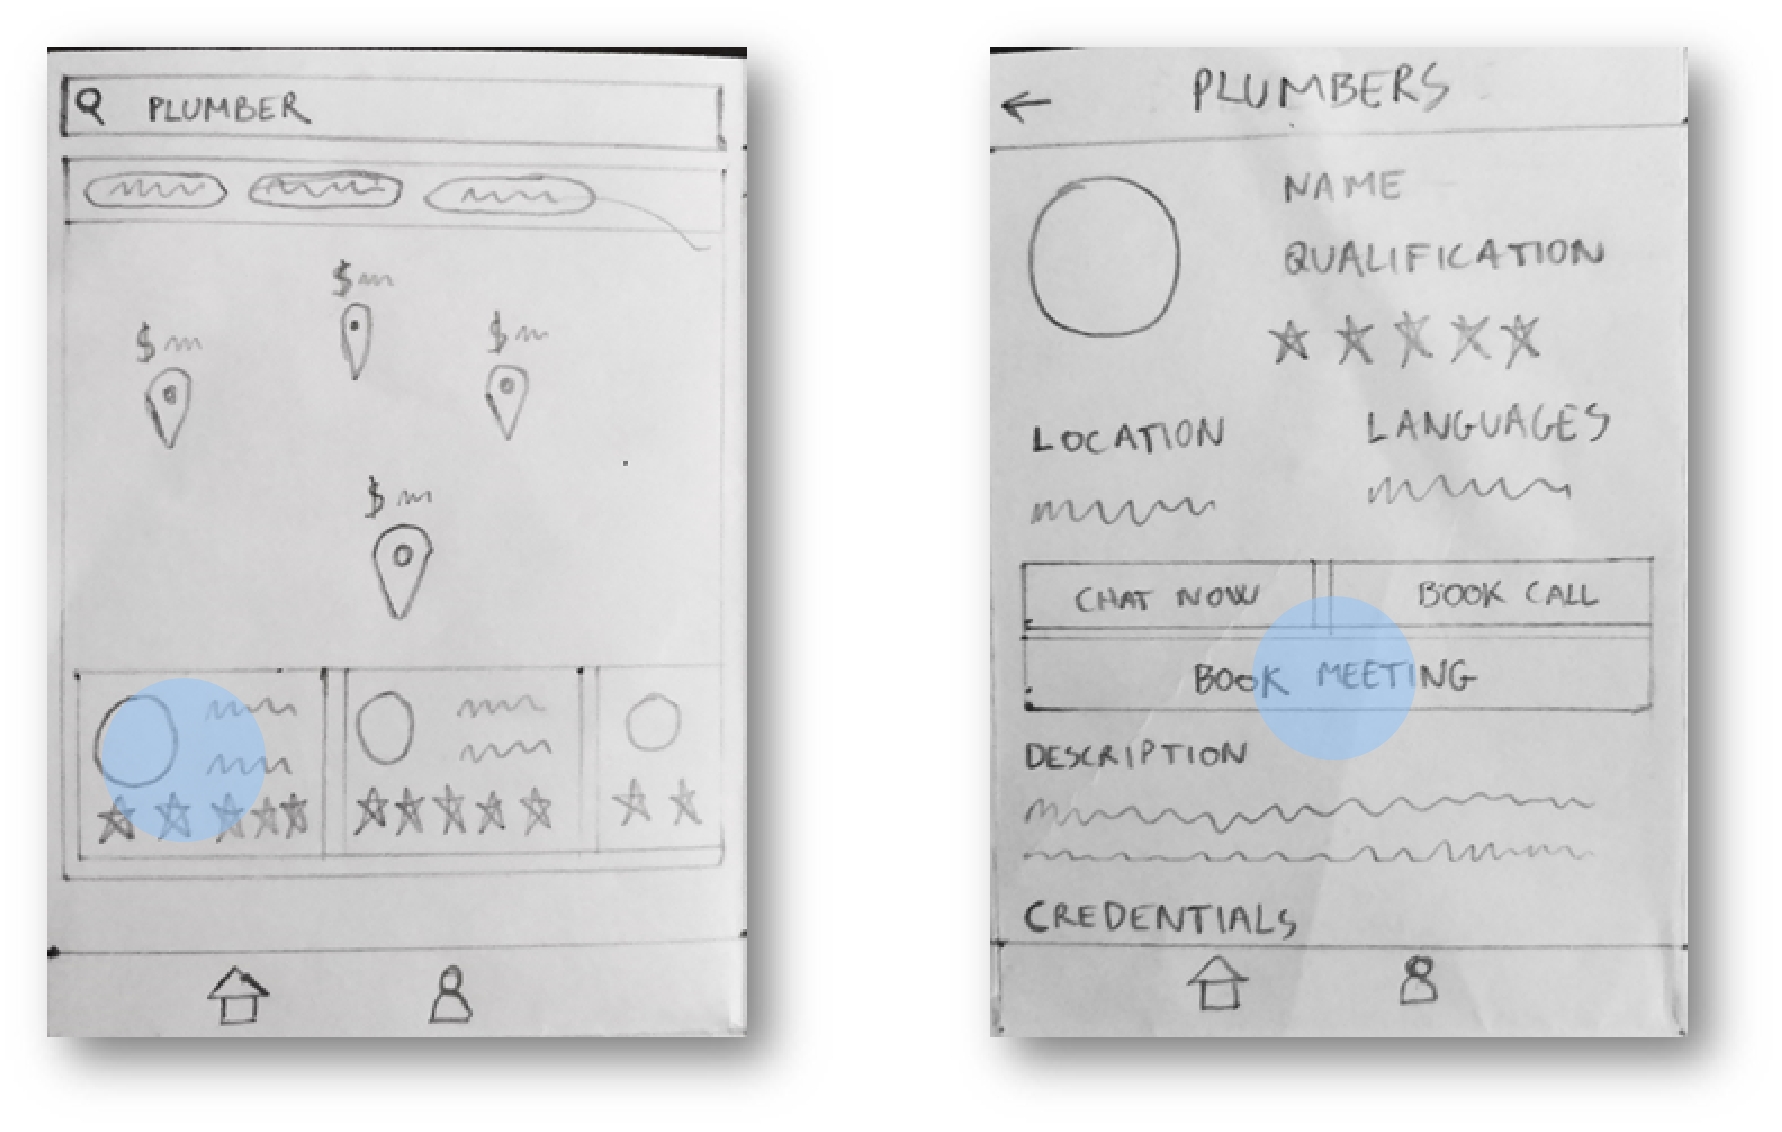 PLUMBER
$
$
$
$
PLUMBERS
NAME
QUALIFICATION
LOCATION
LANGUAGES
CHAT NOW
BOOK CALL
BOOK MEETING
DESCRIPTION
CREDENTIALS